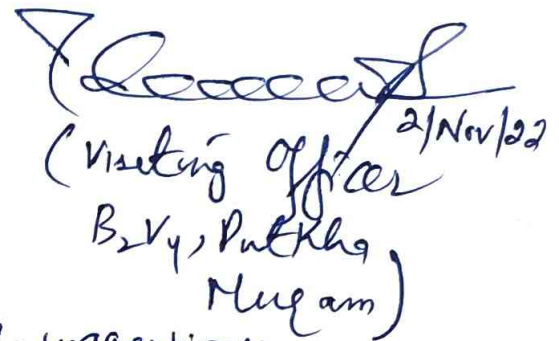 2/Nov/22
(Viseting Officer
B2V4, PutKha
Muqam)